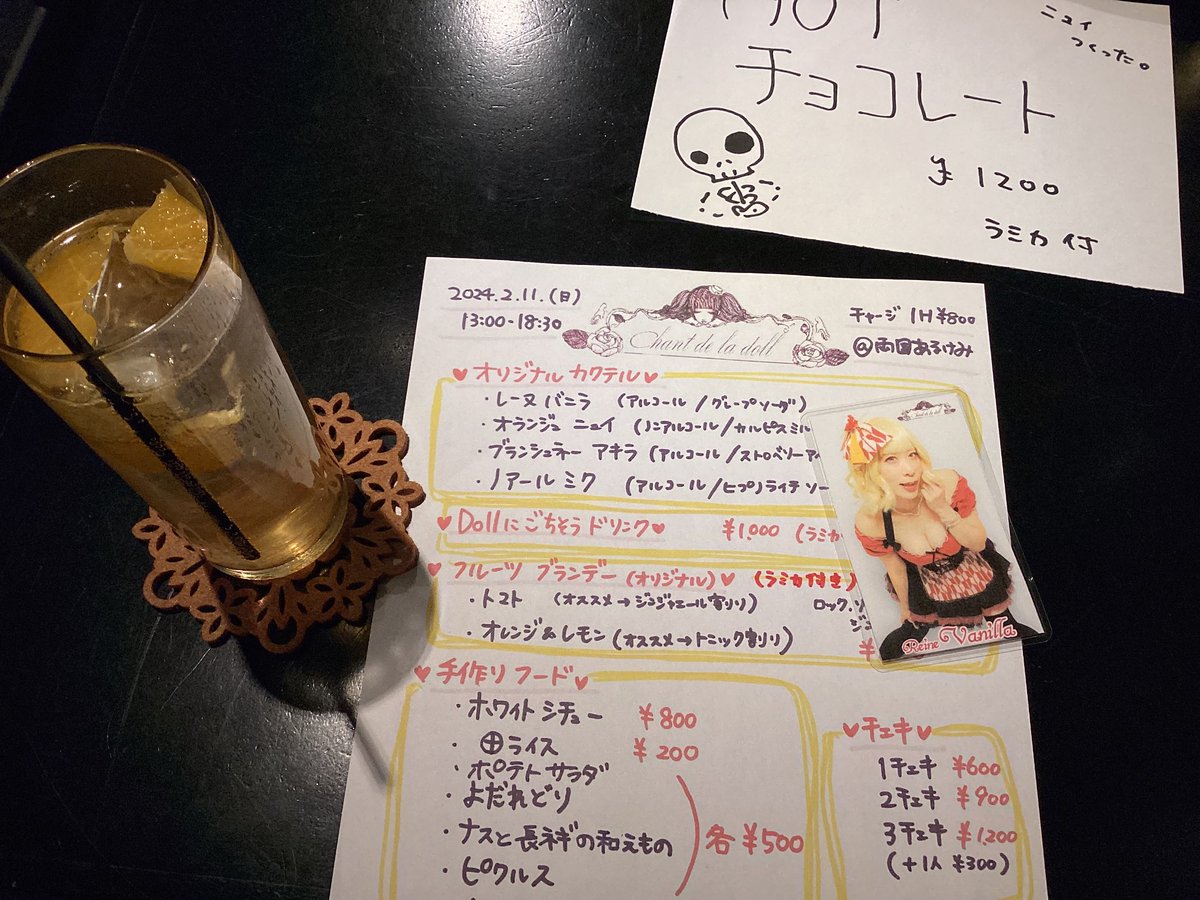 HOT
チョコレート
ニュイ
つくった。
¥1200
ラミカ付
2024.2.11.(日)
13:00-18:30
Chant de la doll
チャージ 1H ¥800
@両国あるけみ
♥オリジナル カクテル♥
・レーヌ バニラ (アルコール/グレープソーダ)
・オランジュ ニュイ (ノンアルコール/カルピスミル
・ブランシュネー アキラ (アルコール/ストロベリーア
・ノアール ミク (アルコール/ヒプノライチ ソー
♥Dollにごちそう ドリンク♥ ¥1,000 (ラミカ
♥フルーツ ブランデー(オリジナル)♥ (ラミカ付き)
・トマト (オススメ→ジンジャエール割り) ロック、ソ
・オレンジ&レモン (オススメ→トニック割り) ¥
♥手作り フード♥
・ホワイト シチュー ¥800
・⊕ライス ¥200
・ポテト サラダ
・よだれどり
・ナスと長ネギの和えもの
・ピクルス
各¥500
Reine Vanilla
♥チェキ♥
1チェキ ¥600
2チェキ ¥900
3チェキ ¥1,200
(+1人 ¥300)